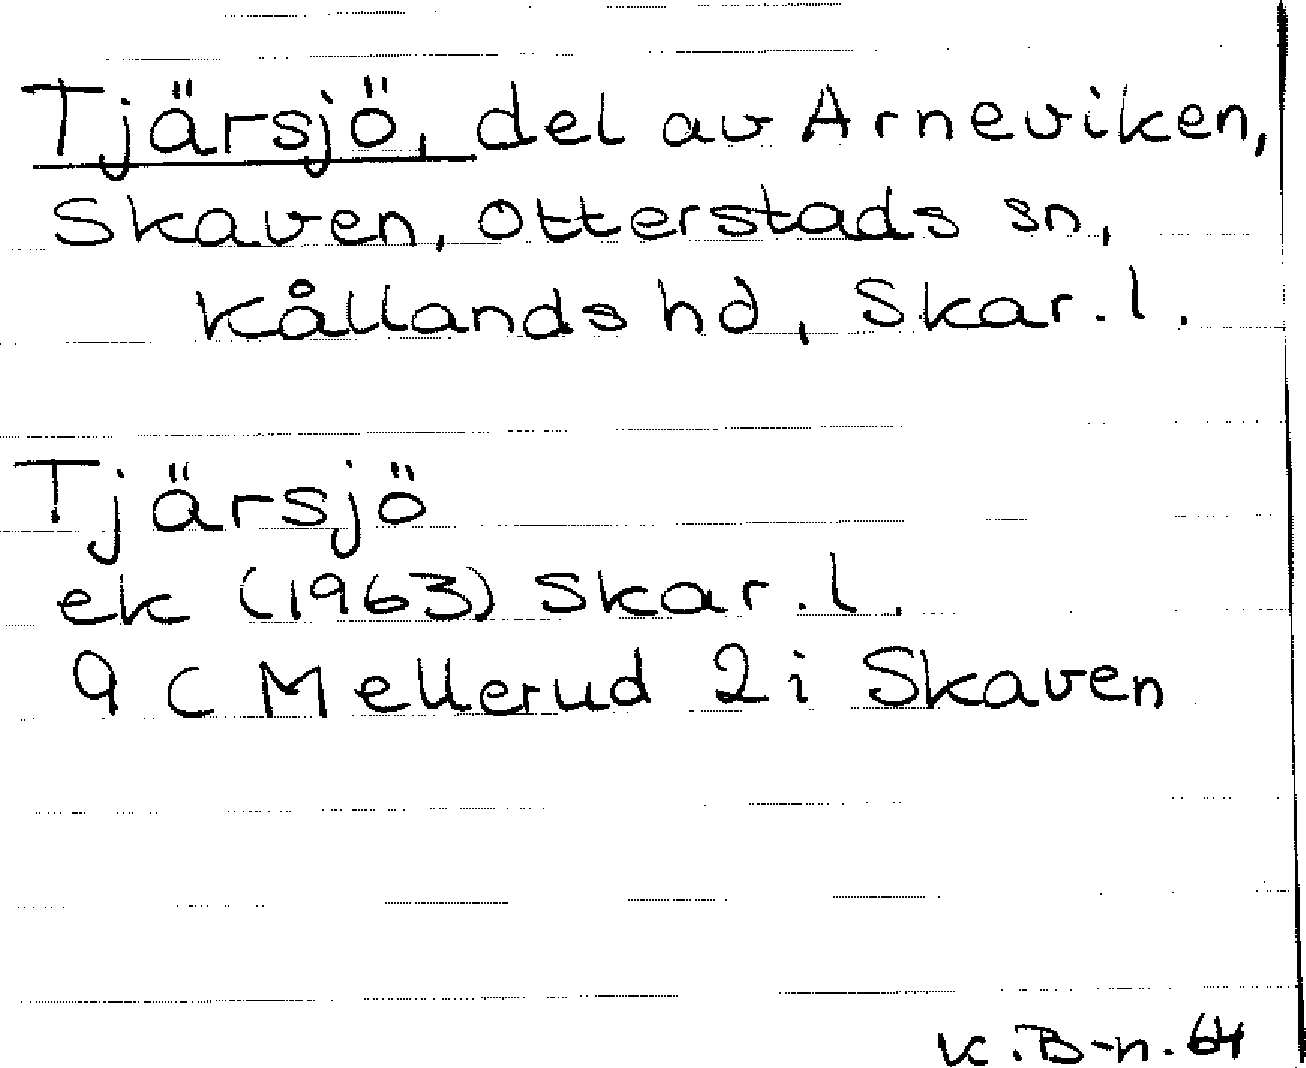 Tjärsjö, del av Arneviken,
Skaven, Otterstads sn,
Kållands hd, Skar. l.
Tjärsjö
ek (1963) Skar. l.
9 C Mellerud 2 i Skaven
K. B-n. 64